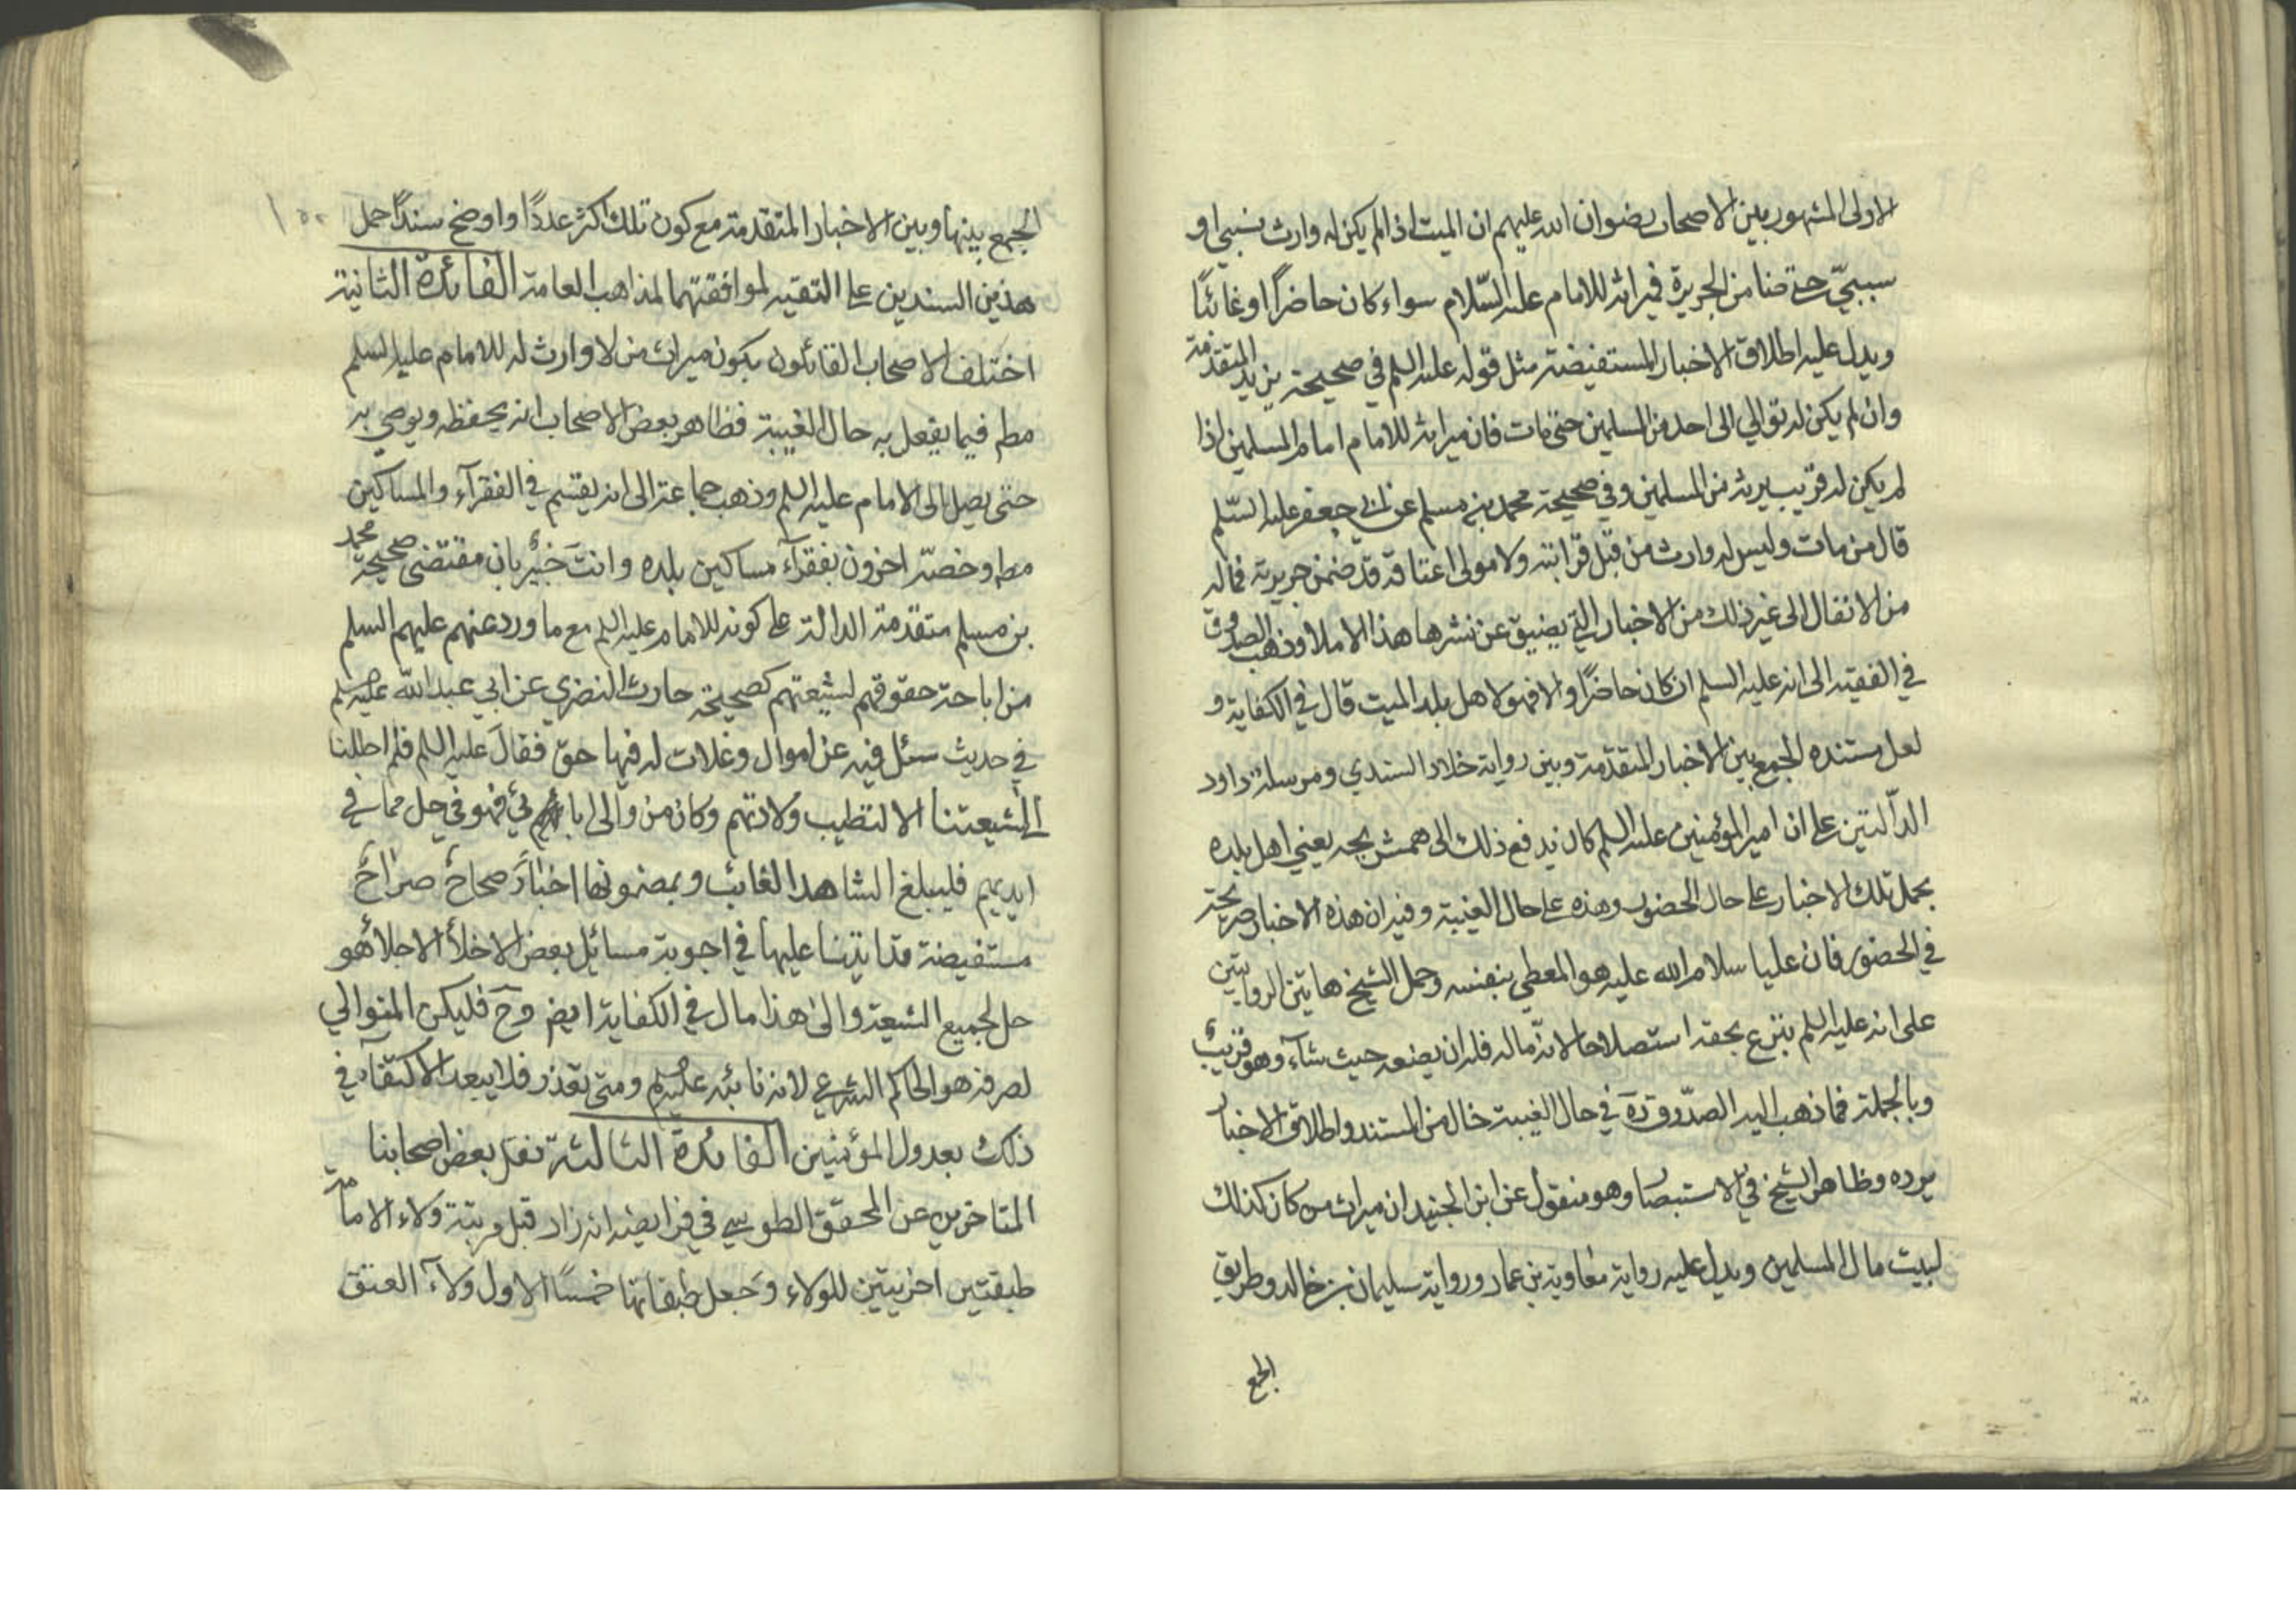 الاولى المشهور بين الاصحاب رضوان الله عليهم ان الميت اذا لم يكن له وارث نسبي او
سببيّ حتى ضامن الجريرة فميراثه للامام عليه السّلام سواء كان حاضراً او غائباً
ويدل عليه اطلاق الاخبار المستفيضة مثل قوله عليه السلم في صحيحة يزيد المتقدمة
وان لم يكن له توالي الى احد من المسلمين حتى مات فان ميراثه للامام امام المسلمين اذا
لم يكن له قريب يرثه من المسلمين وفي صحيحة محمد بن مسلم عن ابي جعفر عليه السّلم
قال من مات وليس له وارث من قبل قرابته ولا مولى اعتاقه قد ضمن جريرته فماله
من الانفال الى غير ذلك من الاخبار التي يضيق عن نشرها هذا الاملا وذهب الصدوق
في الفقيه الى انه عليه السلم ان كان حاضراً والا فهو لاهل بلد الميت قال في الكفاية و
لعل مستنده الجمع بين الاخبار المتقدّمة وبين رواية خلاد السندي ومرسلة داود
الدآلتين على ان امير المؤمنين عليه السلم كان يدفع ذلك الى همشريجه يعني اهل بلده
بحمل تلك الاخبار على حال الحضور وهذه على حال الغيبة وفيه ان هذه الاخبار صريحة
في الحضور فان عليا سلام الله عليه هو المعطي بنفسه وحمل الشيخ هاتين الروايتين
على انه عليه السلم بتزع بحقه استصلاحا لانه ماله فله ان يضعه حيث شآء وهو قريب
وبالجملة فما ذهب اليه الصدّوق ره في حال الغيبة خال من المستند واطلاق الاخبار
يرده وظاهر الشيخ في الاستبصار وهو منقول عن ابن الجنيد ان ميراث من كان كذلك
لبيت مال المسلمين ويدل عليه رواية معاوية بن عمار ورواية سليمان بن خالد وطريق
الجمع
الجمع بينها وبين الاخبار المتقدمة مع كون تلك اكثر عدداً واوضح سنداً حمل
هذين السندين على التقيه لموافقتهما لمذاهب العامة الفائدة الثانية
اختلف الاصحاب القائلون بكون ميراث من لا وارث له للامام عليه السلم
مطم فيما يفعل به حال الغيبة فظاهر بعض الاصحاب انه يحفظه ويوصي به
حتى يصل الى الامام عليه السلم وذهب جماعة الى انه يقسم في الفقرآء والمساكين
مطم وخصّه اخرون بفقرآء مساكين بلده وانت خبير بان مقتضى صحيحة محمد
بن مسلم متقدمة الدالة على كونه للامام عليه السلم مع ما ورد عنهم عليهم السلم
من اباحة حقوقهم لشيعتهم كصحيحة حارث النضري عن ابي عبد الله عليه السلم
في حديث سئل فيه عن اموال وغلات له فيها حق فقال عليه السلم فلم احللنا
الشيعتنا الا لتطيب ولادتهم وكان من والى ابائي فهو في حل مما في
ايديهم فليبلغ الشاهد الغائب وبمضمونها اخبار صحاح صراح
مستفيضة قد اتينا عليها في اجوبة مسائل بعض الاخلأ الاجلأ هو
حل لجميع الشيعة والى هذا مال في الكفاية ايض وح فليكن المتوالي
لصرفه هو الحاكم الشرعي لانه نائبه عليه السلم ومتى تعذر فلا يبعد الاكتفآء في
ذلك بعدول المؤمنين الفائدة الثالثة نقل بعض اصحابنا
المتاخرين عن المحقق الطوسي في فرايضه انه زاد قبل مرتبة ولاء الامامة
طبقتين اخريتين للولاء وجعل طبقاتها خمساً الاول ولاء العتق